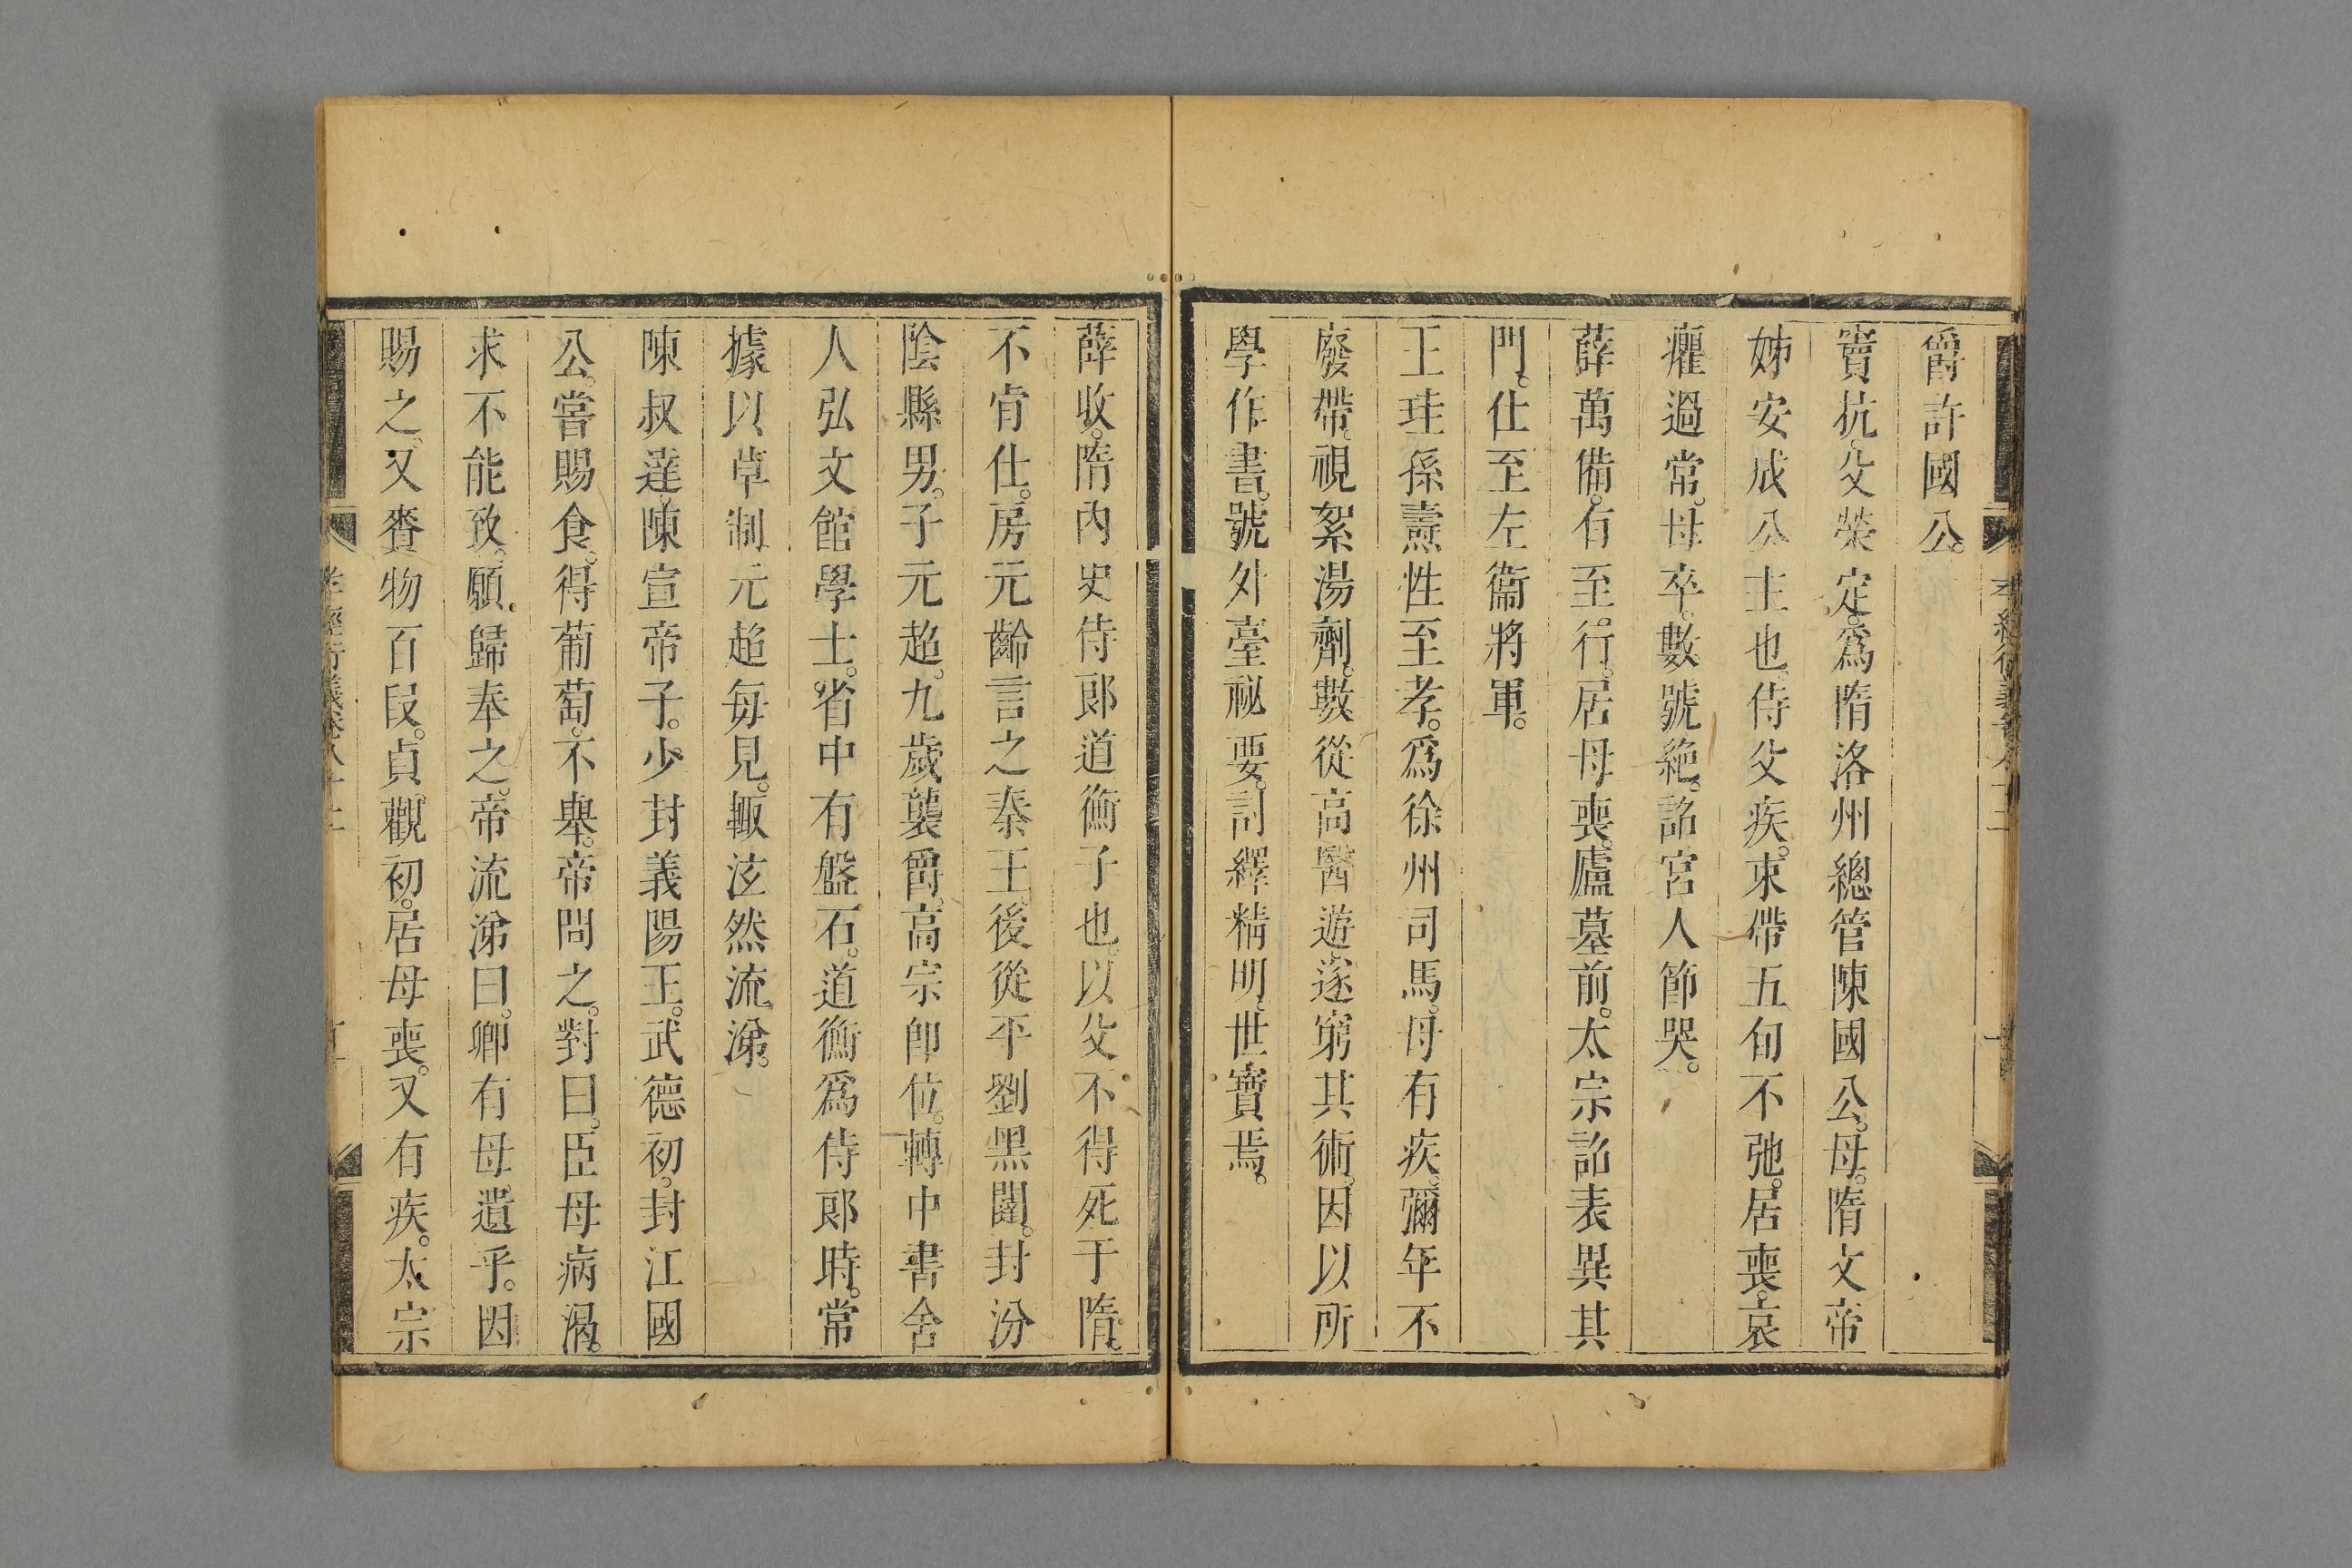 爵許國公。
竇抗。父榮定。爲隋洛州總管陳國公。母。隋文帝
姊安成公主也。侍父疾。束帶五旬不弛。居喪。哀
癯過常。母卒。數號絶。詔宮人節哭。
薛萬備。有至行。居母喪。廬墓前。太宗詔表異其
門。仕至左衞將軍。
王珪孫燾性至孝。爲徐州司馬。母有疾。彌年不
廢帶。視絮湯劑。數從高醫遊。遂窮其術。因以所
學作書。號外臺祕要。討繹精明。世寶焉。
薛收。隋內史侍郎道衡子也。以父不得死于隋。
不肯仕。房元齡言之秦王。後從平劉黑闥。封汾
陰縣男。子元超。九歲襲爵。高宗卽位。轉中書舍
人弘文館學士。省中有盤石。道衡爲侍郎時。常
據以草制元超每見。輙泫然流涕。
陳叔達。陳宣帝子。少封義陽王。武德初。封江國
公。嘗賜食。得葡萄。不舉。帝問之。對曰。臣母病渴。
求不能致。願歸奉之。帝流涕曰。卿有母遺乎。因
賜之。又賚物百段。貞觀初。居母喪。又有疾。太宗